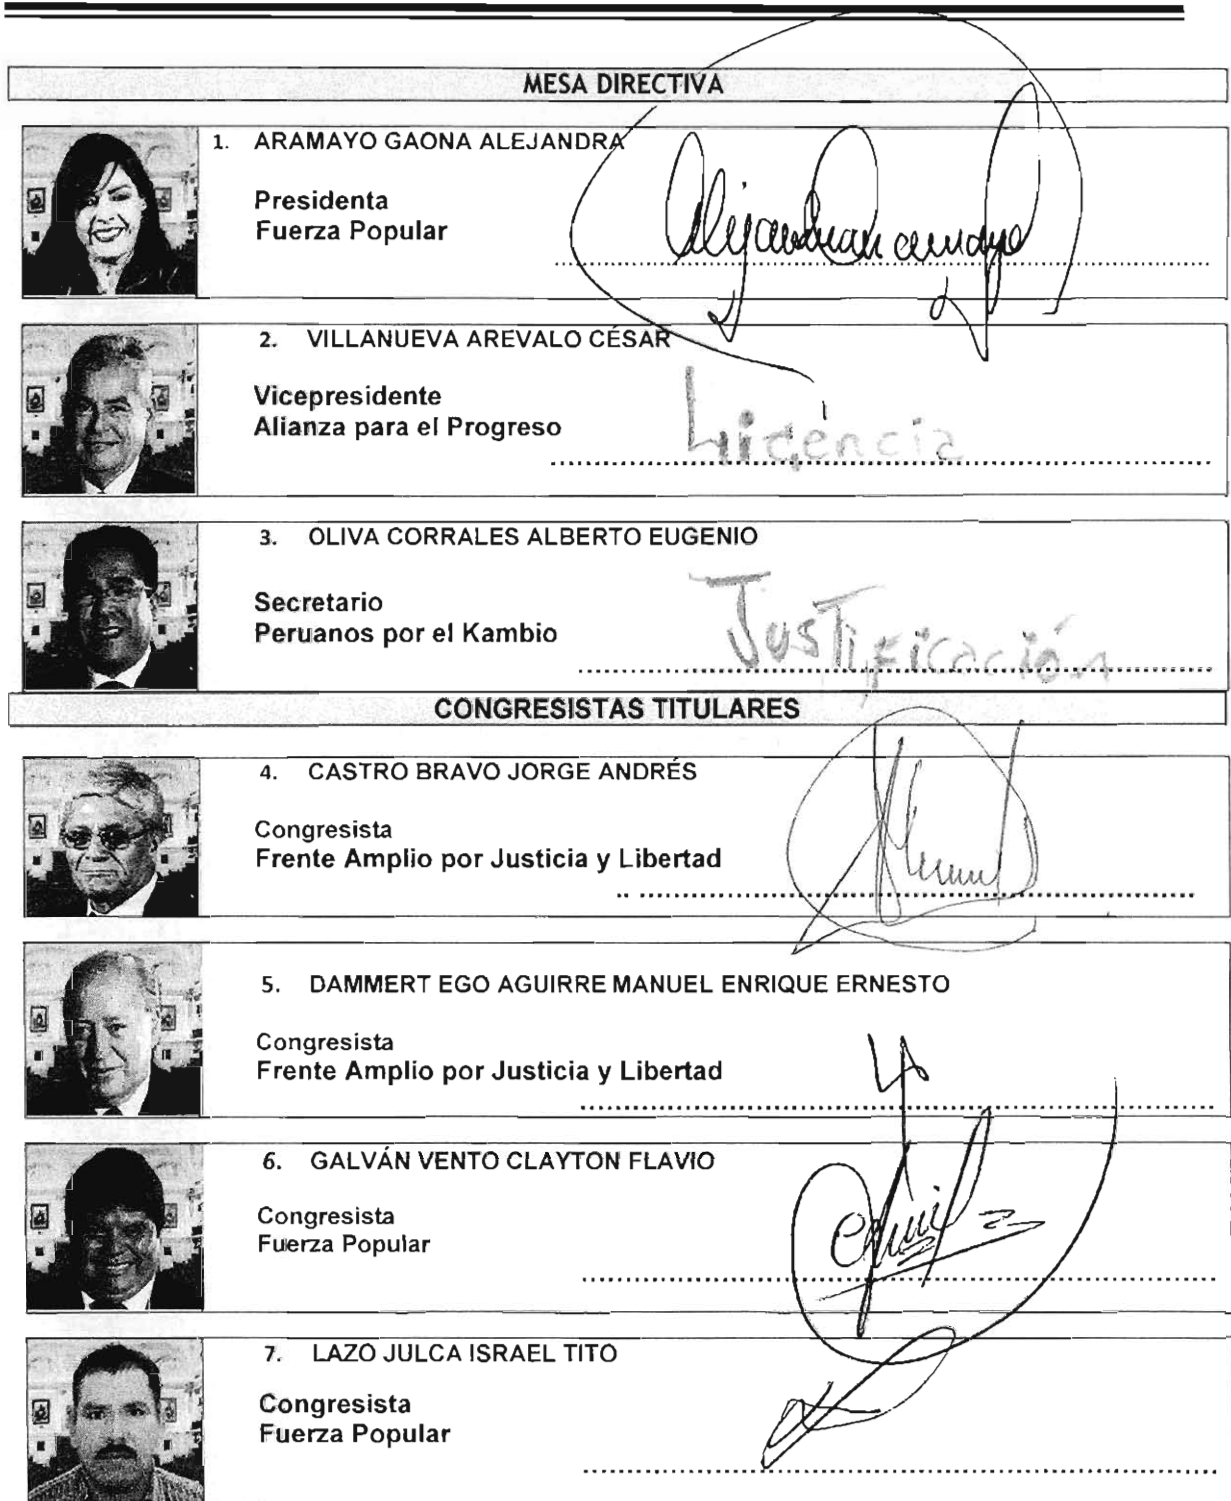 MESA DIRECTIVA
1. ARAMAYO GAONA ALEJANDRA
Presidenta
Fuerza Popular
2. VILLANUEVA AREVALO CÉSAR
Vicepresidente
Alianza para el Progreso
Licencia
3. OLIVA CORRALES ALBERTO EUGENIO
Secretario
Peruanos por el Kambio
Justificación
CONGRESISTAS TITULARES
4. CASTRO BRAVO JORGE ANDRÉS
Congresista
Frente Amplio por Justicia y Libertad
5. DAMMERT EGO AGUIRRE MANUEL ENRIQUE ERNESTO
Congresista
Frente Amplio por Justicia y Libertad
6. GALVÁN VENTO CLAYTON FLAVIO
Congresista
Fuerza Popular
7. LAZO JULCA ISRAEL TITO
Congresista
Fuerza Popular